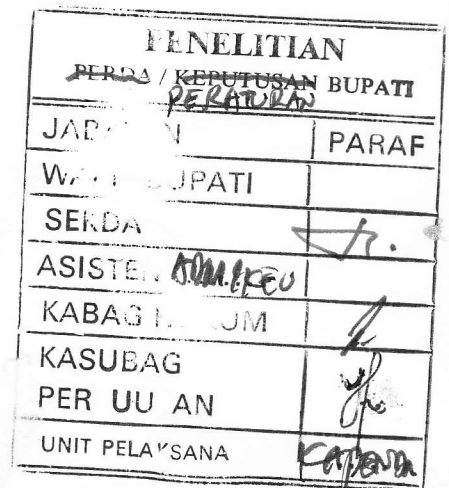 PENELITIAN
PERDA / KEPUTUSAN BUPATI
PERATURAN
JABATAN PARAF
WAKIL BUPATI
SEKDA
ASISTEN ADM. KEU
KABAG HUKUM
KASUBAG
PER UU AN
UNIT PELAKSANA